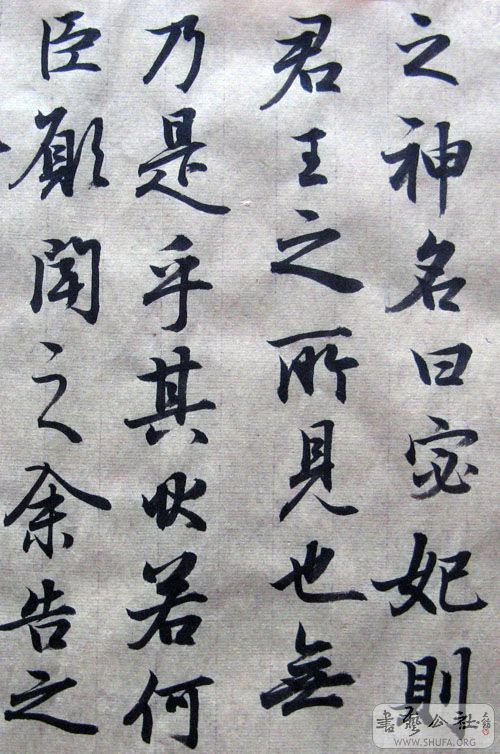 之神名曰宓妃則
君王之所見也無
乃是乎其狀若何
臣願聞之余告之
書藝公社
WWW.SHUFA.ORG